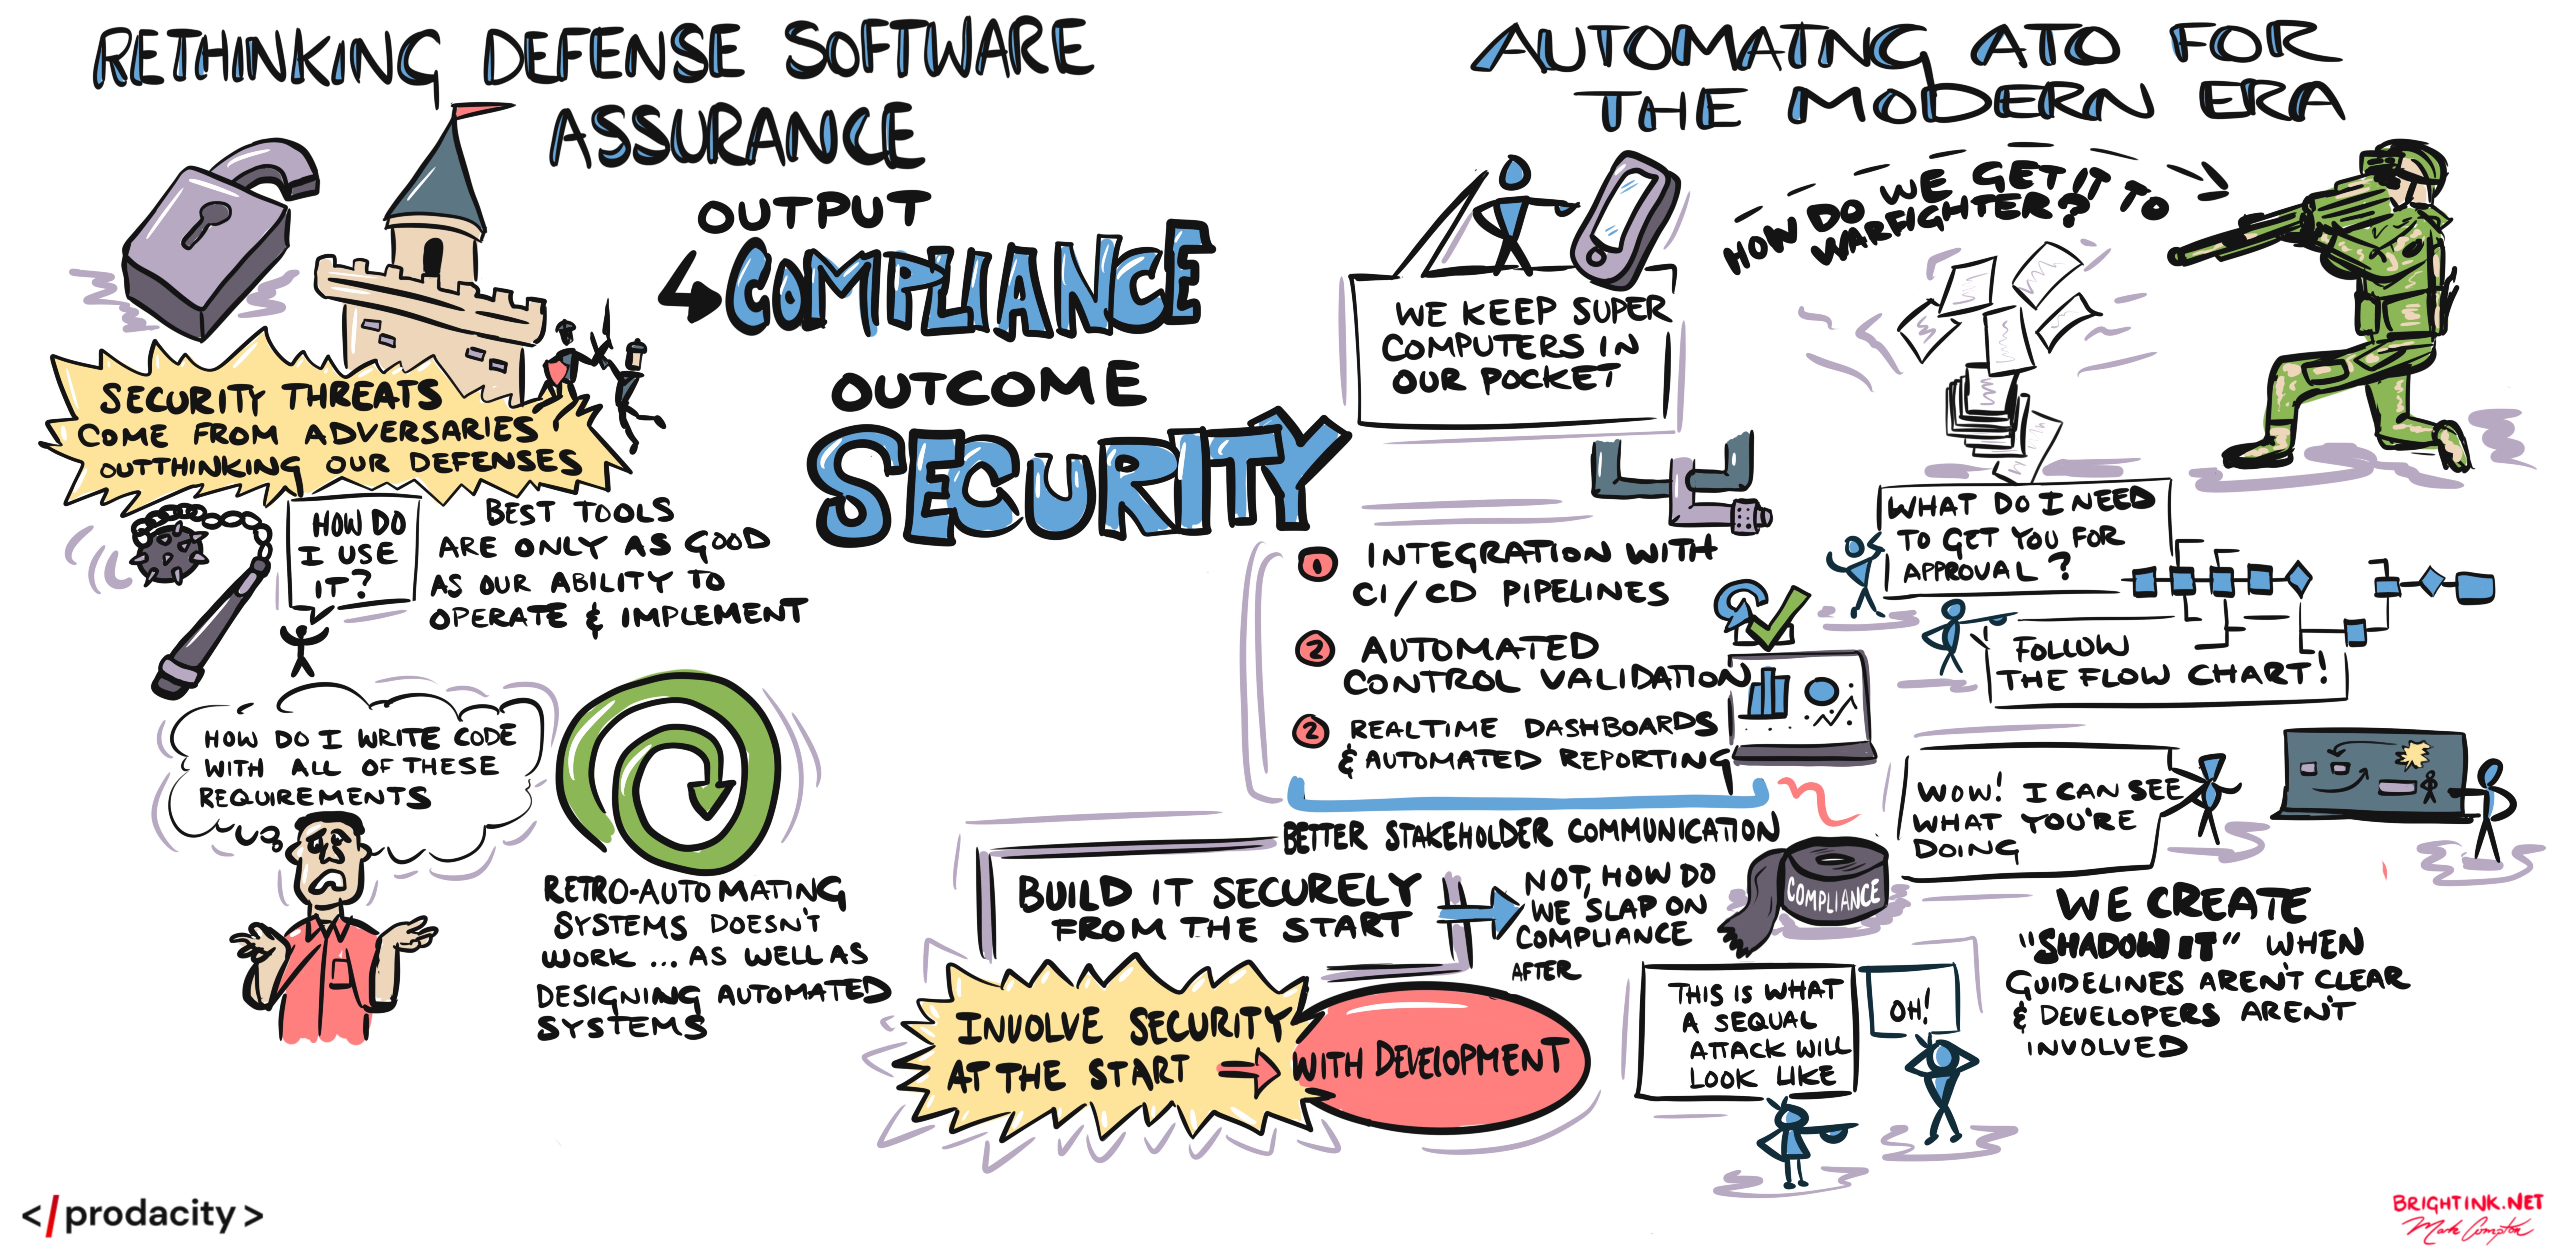 RETHINKING DEFENSE SOFTWARE
ASSURANCE
OUTPUT
COMPLIANCE
OUTCOME
SECURITY
SECURITY THREATS
COME FROM ADVERSARIES
OUTTHINKING OUR DEFENSES
HOW DO
I USE
IT?
BEST TOOLS
ARE ONLY AS GOOD
AS OUR ABILITY TO
OPERATE & IMPLEMENT
HOW DO I WRITE CODE
WITH ALL OF THESE
REQUIREMENTS
RETRO-AUTOMATING
SYSTEMS DOESN'T
WORK ... AS WELL AS
DESIGNING AUTOMATED
SYSTEMS
AUTOMATNG ATO FOR
THE MODERN ERA
WE KEEP SUPER
COMPUTERS IN
OUR POCKET
HOW DO WE GET IT TO
WARFIGHTER?
1 INTEGRATION WITH
CI/CD PIPELINES
2 AUTOMATED
CONTROL VALIDATION
2 REALTIME DASHBOARDS
& AUTOMATED REPORTING
BETTER STAKEHOLDER COMMUNICATION
BUILD IT SECURELY
FROM THE START
NOT, HOW DO
WE SLAP ON
COMPLIANCE
AFTER
COMPLIANCE
INVOLVE SECURITY
AT THE START
WITH DEVELOPMENT
WHAT DO I NEED
TO GET YOU FOR
APPROVAL?
FOLLOW
THE FLOW CHART!
WOW! I CAN SEE
WHAT YOU'RE
DOING
WE CREATE
"SHADOW IT" WHEN
GUIDELINES AREN'T CLEAR
& DEVELOPERS AREN'T
INVOLVED
THIS IS WHAT
A SEQUAL
ATTACK WILL
LOOK LIKE
OH!
</prodacity>
BRIGHTINK.NET
Mark Compton